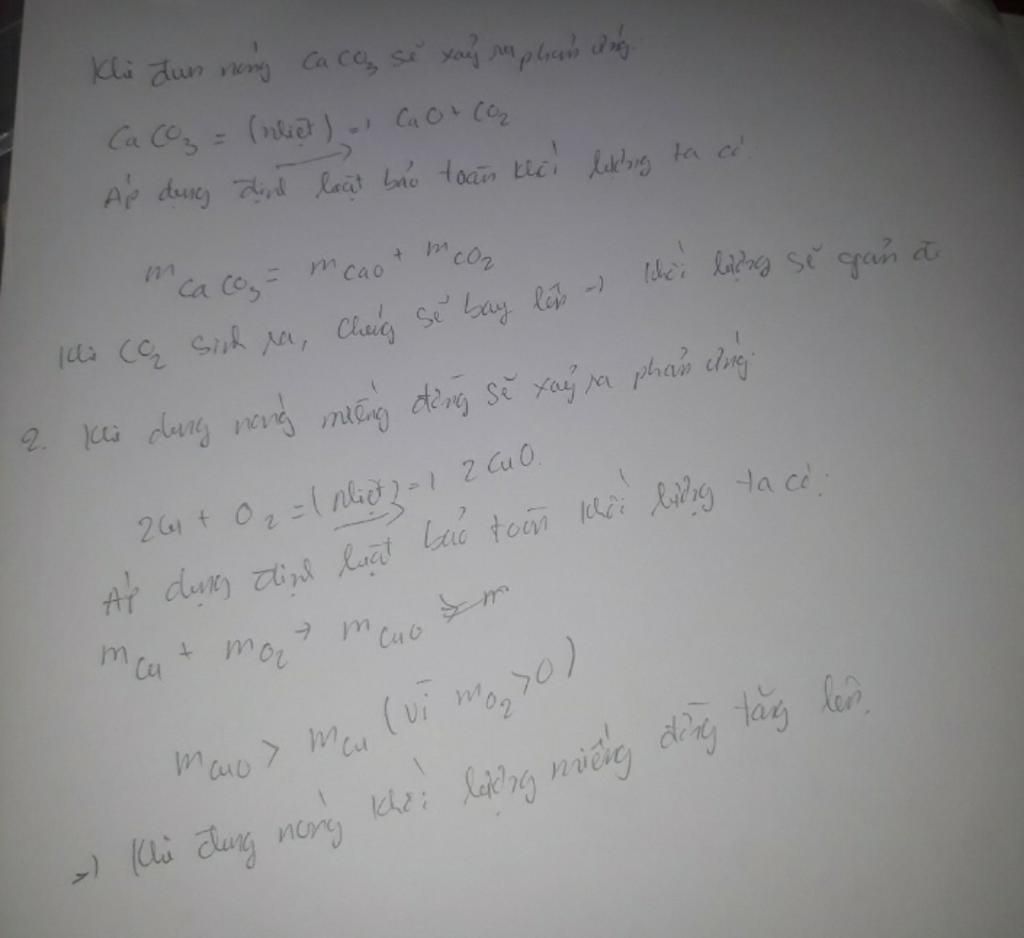 Khi đun nóng CaCO3 sẽ xảy ra phản ứng
CaCO3 =(nhiệt)=> CaO + CO2
Áp dụng định luật bảo toàn khối lượng ta có
mCaCO3 = mCaO + mCO2
Khi CO2 sinh ra, chúng sẽ bay lên => khối lượng sẽ giản đi
2. Khi dung nóng miếng đồng sẽ xảy ra phản ứng
2Cu + O2 =(nhiệt)=> 2CuO.
Áp dụng định luật bảo toàn khối lượng ta có:
mCu + mO2 → mCuO
mCuO > mCu (vì mO2 > 0)
=> Khi đung nóng khối lượng miếng đồng tăng lên.